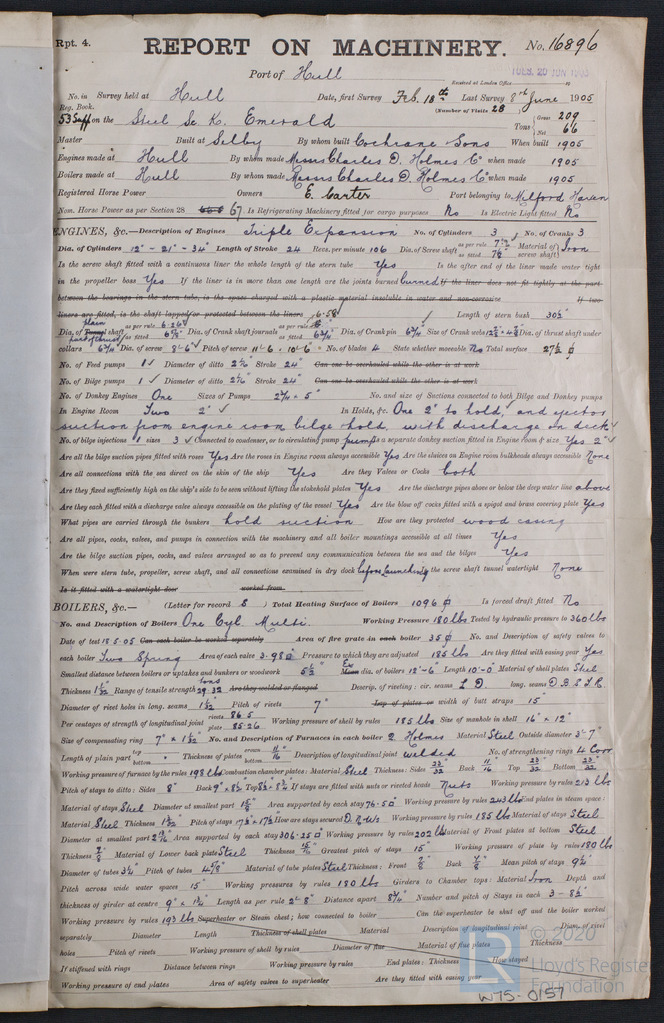 Rpt. 4.
REPORT ON MACHINERY. No. 16896
Port of Hull
Received at London Office TUES. 20 JUN 1905
No. in Survey held at Hull Date, first Survey Feb. 18th Last Survey 8th June 1905
Reg. Book. (Number of Visits 28)
53 Supp on the Steel Sc K. Emerald Tons Gross 209 Net 66
Master Built at Selby By whom built Cochrane & Sons When built 1905
Engines made at Hull By whom made Messrs Charles D. Holmes & Co when made 1905
Boilers made at Hull By whom made Messrs Charles D. Holmes & Co when made 1905
Registered Horse Power Owners E. Carter Port belonging to Milford Haven
Nom. Horse Power as per Section 28 67 Is Refrigerating Machinery fitted for cargo purposes No Is Electric Light fitted No
ENGINES, &c.—Description of Engines Triple Expansion No. of Cylinders 3 No. of Cranks 3
Dia. of Cylinders 12" - 21" - 34" Length of Stroke 24 Revs. per minute 106 Dia. of Screw shaft as per rule as fitted 7½ Material of screw shaft Iron
Is the screw shaft fitted with a continuous liner the whole length of the stern tube Yes Is the after end of the liner made water tight
in the propeller boss Yes If the liner is in more than one length are the joints burned burned If the liner does not fit tightly at the part
between the bearings in the stern tube, is the space charged with a plastic material insoluble in water and non-corrosive If two
liners are fitted, is the shaft lapped or protected between the liners Length of stern bush 30½"
Dia. of Tunnel shaft as per rule 6.26 as fitted Dia. of Crank shaft journals as per rule 6.58 as fitted 6¾" Dia. of Crank pin 6¾" Size of Crank webs Dia. of thrust shaft under
collars 6¾" Dia. of screw 8'-6" Pitch of screw No. of blades 4 State whether moveable No Total surface 27½
No. of Feed pumps 1 Diameter of ditto Stroke 24" Can one be overhauled while the other is at work
No. of Bilge pumps 1 Diameter of ditto Stroke 24" Can one be overhauled while the other is at work
No. of Donkey Engines One Sizes of Pumps No. and size of Suctions connected to both Bilge and Donkey pumps
In Engine Room Two 2" In Holds, &c. One 2" to hold, and ejector
suction from engine room bilge & hold, with discharge on deck
No. of bilge injections 1 sizes 3 Connected to condenser, or to circulating pump pump Is a separate donkey suction fitted in Engine room & size Yes 2"
Are all the bilge suction pipes fitted with roses Yes Are the roses in Engine room always accessible Yes Are the sluices on Engine room bulkheads always accessible None
Are all connections with the sea direct on the skin of the ship Yes Are they Valves or Cocks both
Are they fixed sufficiently high on the ship's side to be seen without lifting the stokehold plates Yes Are the discharge pipes above or below the deep water line above
Are they each fitted with a discharge valve always accessible on the plating of the vessel Yes Are the blow off cocks fitted with a spigot and brass covering plate Yes
What pipes are carried through the bunkers hold suction How are they protected wood casing
Are all pipes, cocks, valves, and pumps in connection with the machinery and all boiler mountings accessible at all times Yes
Are the bilge suction pipes, cocks, and valves arranged so as to prevent any communication between the sea and the bilges Yes
When were stern tube, propeller, screw shaft, and all connections examined in dry dock before launching Is the screw shaft tunnel watertight None
Is it fitted with a watertight door worked from
BOILERS, &c.— (Letter for record S) Total Heating Surface of Boilers 1096 Is forced draft fitted No
No. and Description of Boilers One Cyl. Multi. Working Pressure 180 lbs Tested by hydraulic pressure to 360 lbs
Date of test 18.5.05 Can each boiler be worked separately Area of fire grate in each boiler 35 No. and Description of safety valves to
each boiler Two Spring Area of each valve 3.98 Pressure to which they are adjusted 185 lbs Are they fitted with easing gear Yes
Smallest distance between boilers or uptakes and bunkers or woodwork 5½" Ex Mean dia. of boilers 12'-6" Length 10'-0" Material of shell plates Steel
Thickness Range of tensile strength tons 29.32 Are they welded or flanged Descrip. of riveting: cir. seams L D. long. seams D.B.S.T.R.
Diameter of rivet holes in long. seams Pitch of rivets 7" Lap of plates or width of butt straps 15"
Per centages of strength of longitudinal joint rivets 86.5 plate 85.26 Working pressure of shell by rules 185 lbs Size of manhole in shell 16" x 12"
Size of compensating ring No. and Description of Furnaces in each boiler 2 Holmes Material Steel Outside diameter 3'-7"
Length of plain part top bottom Thickness of plates crown bottom Description of longitudinal joint welded No. of strengthening rings 4 Corr
Working pressure of furnace by the rules 198 lbs Combustion chamber plates: Material Steel Thickness: Sides 23/32 Back 11/16 Top 23/32 Bottom 23/32
Pitch of stays to ditto: Sides 8" Back Top If stays are fitted with nuts or riveted heads Nuts Working pressure by rules 213 lbs
Material of stays Steel Diameter at smallest part Area supported by each stay 76.50 Working pressure by rules 243 lbs End plates in steam space:
Material Steel Thickness Pitch of stays How are stays secured D.N&W Working pressure by rules 185 lbs Material of stays Steel
Diameter at smallest part Area supported by each stay 306.25 Working pressure by rules 202 lbs Material of Front plates at bottom Steel
Thickness Material of Lower back plate Steel Thickness Greatest pitch of stays 15" Working pressure of plate by rules 180 lbs
Diameter of tubes 3½ Pitch of tubes Material of tube plates Steel Thickness: Front Back Mean pitch of stays
Pitch across wide water spaces 15" Working pressures by rules 180 lbs Girders to Chamber tops: Material Iron Depth and
thickness of girder at centre Length as per rule 2'-8" Distance apart Number and pitch of Stays in each 3 - 8½"
Working pressure by rules 193 lbs Superheater or Steam chest; how connected to boiler Can the superheater be shut off and the boiler worked
separately Diameter Length Thickness of shell plates Material Description of longitudinal joint Diam. of rivet
holes Pitch of rivets Working pressure of shell by rules Diameter of flue Material of flue plates Thickness
If stiffened with rings Distance between rings Working pressure by rules End plates: Thickness How stayed
Working pressure of end plates Area of safety valves to superheater Are they fitted with easing gear
© 2020
Lloyd's Register
Foundation
W75-0157